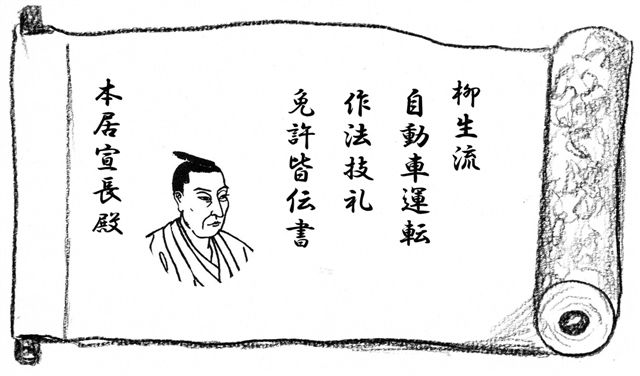 柳生流
自動車運転
作法技礼
免許皆伝書
本居宣長殿